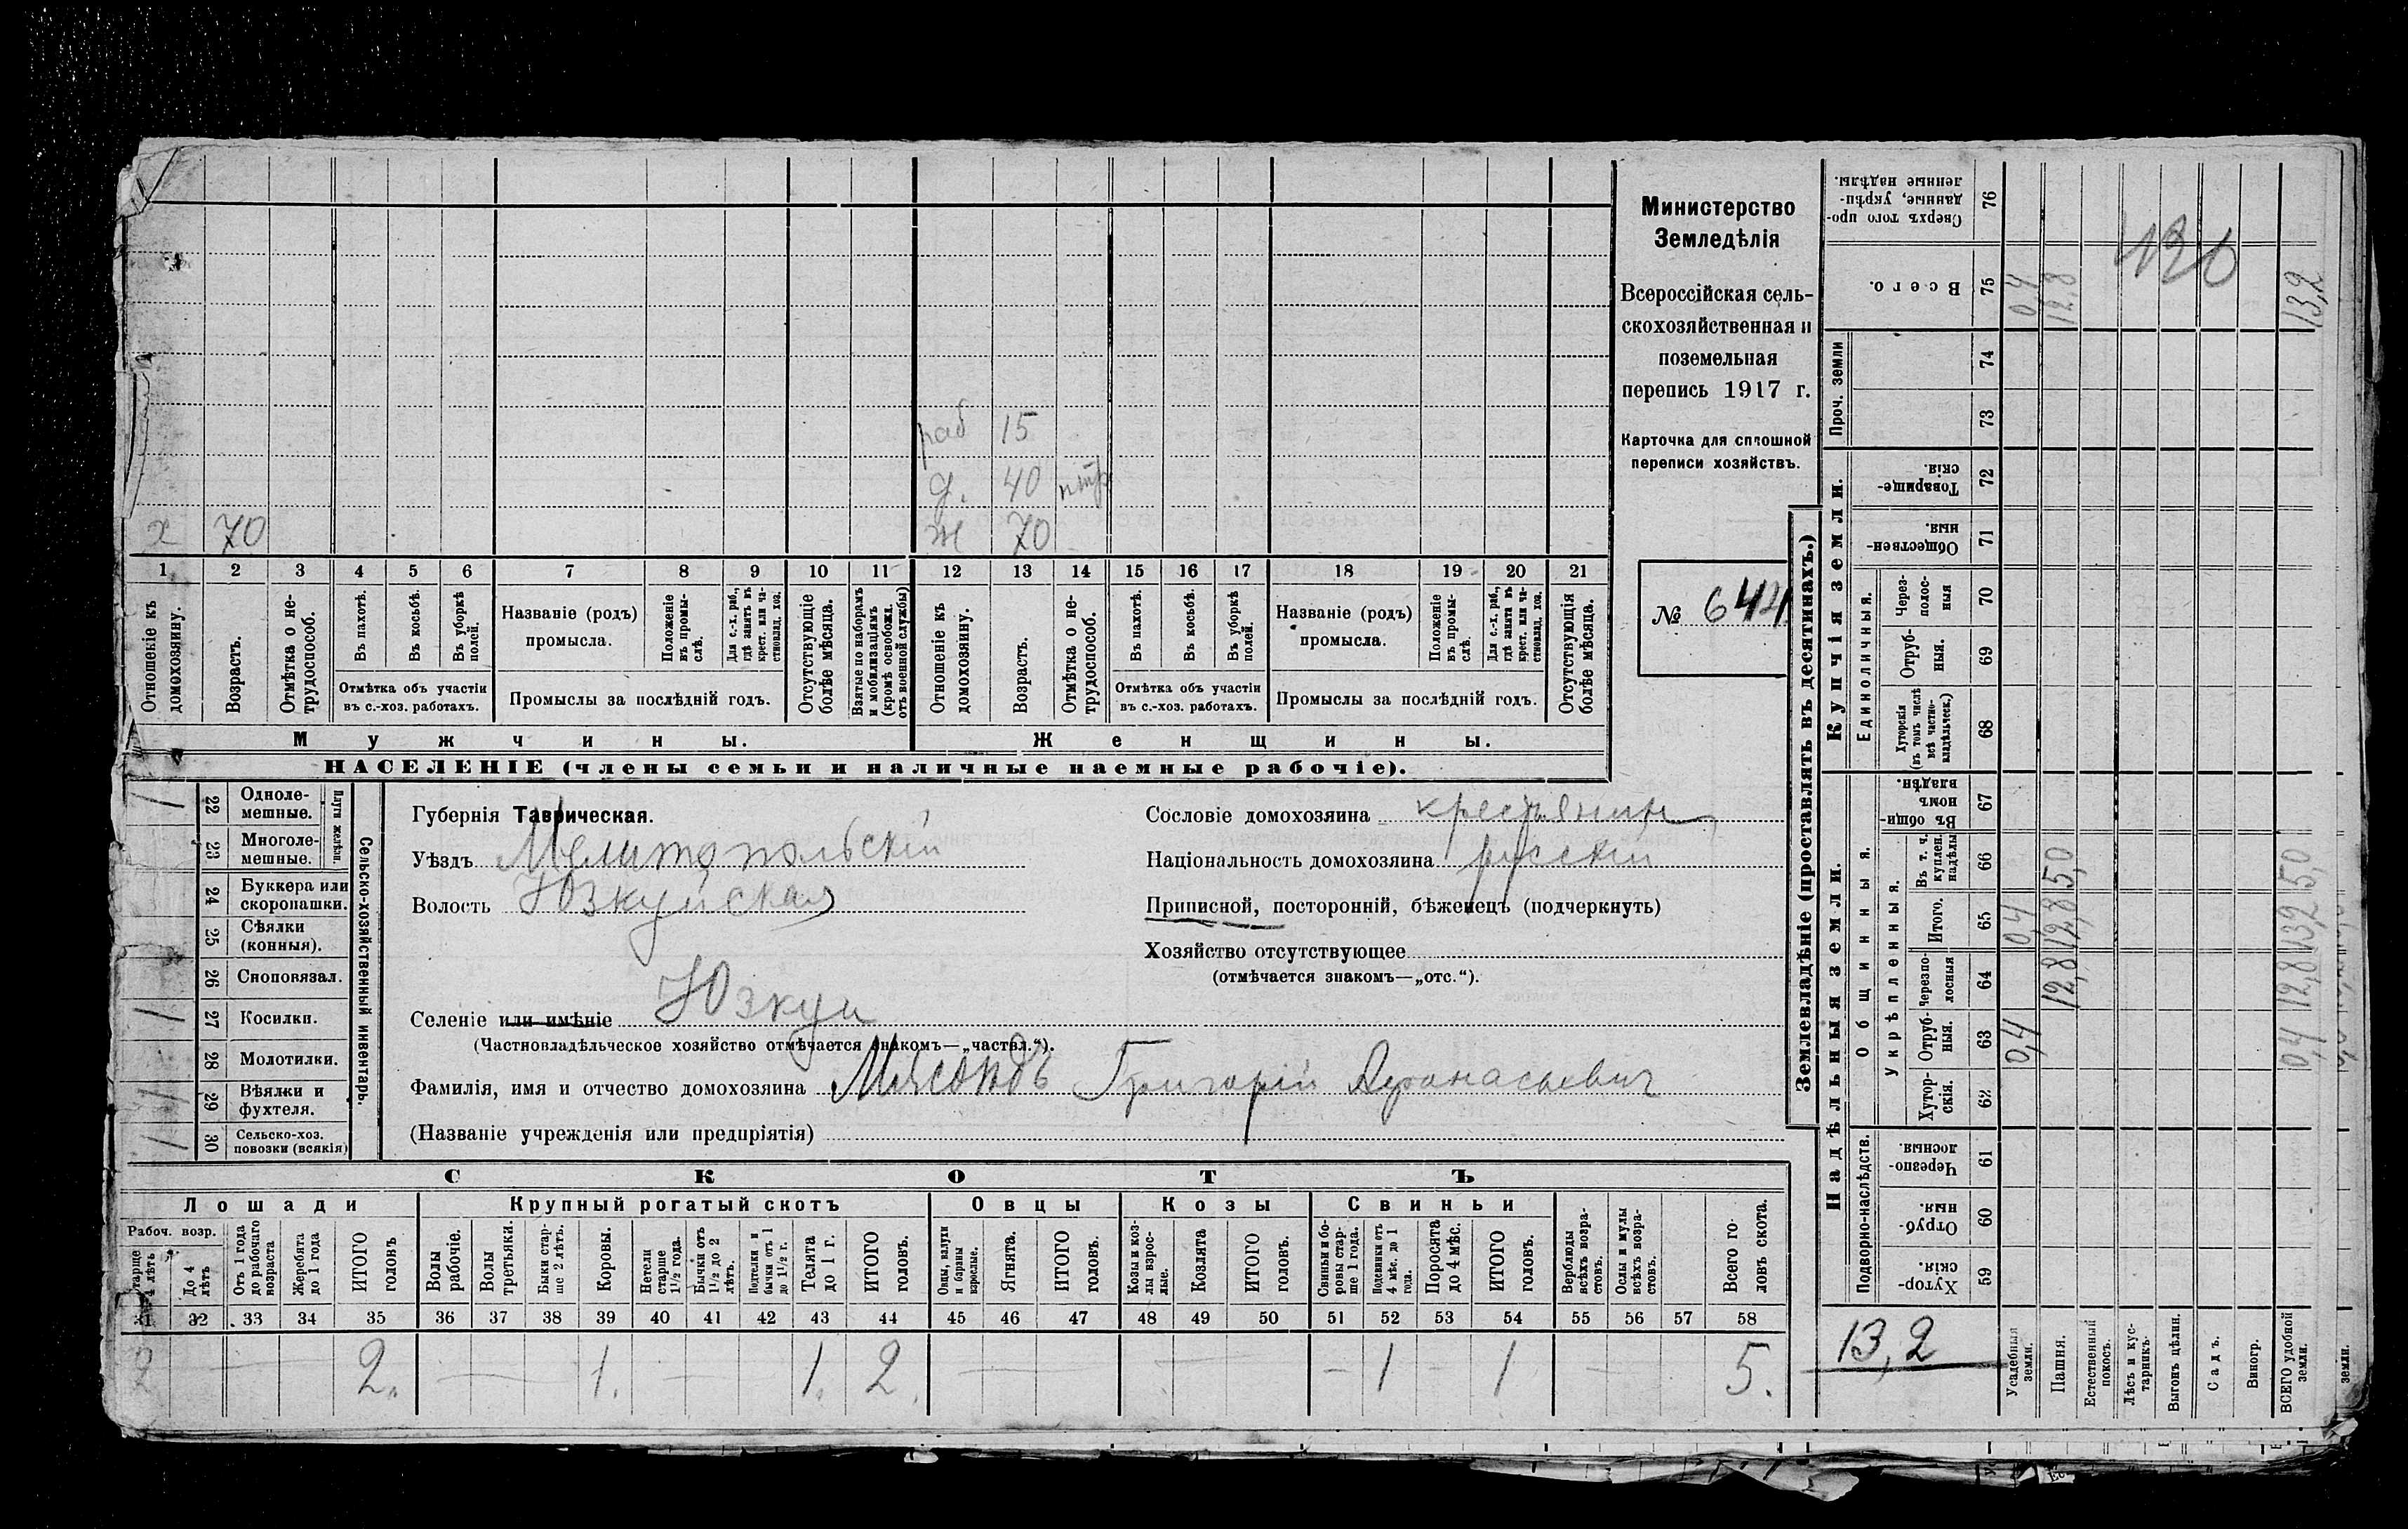 Министерство
Земледѣлія
Всероссійская сель-
скохозяйственная и
поземельная
перепись 1917 г.
Карточка для сплошной
переписи хозяйствъ.
№ 644
раб 15
д. 40
х 70 ж 70
1 2 3 4 5 6 7 8 9 10 11 12 13 14 15 16 17 18 19 20 21
Отношеніе къ домохозяину.
Возрастъ.
Отмѣтка о не-трудоспособ.
Въ пахотѣ.
Въ косьбѣ.
Въ уборкѣ полей.
Отмѣтка объ участіи
въ с.-хоз. работахъ.
Названіе (родъ)
промысла.
Положеніе въ промы-слѣ.
Для с.-х. раб., гдѣ занятъ въ крест. или ча-стновлад. хоз.
Промыслы за послѣдній годъ.
Отсутствующіе болѣе мѣсяца.
Взятые по наборамъ и мобилизаціямъ (кромѣ освобожд. отъ военной службы)
Отношеніе къ домохозяину.
Возрастъ.
Отмѣтка о не-трудоспособ.
Въ пахотѣ.
Въ косьбѣ.
Въ уборкѣ полей.
Отмѣтка объ участіи
въ с.-хоз. работахъ.
Названіе (родъ)
промысла.
Положеніе въ промы-слѣ.
Для с.-х. раб., гдѣ занята въ крест. или ча-стновлад. хоз.
Промыслы за послѣдній годъ.
Отсутствующія болѣе мѣсяца.
Мужчины. Женщины.
НАСЕЛЕНІЕ (члены семьи и наличные наемные рабочіе).
Сельско-хозяйственный инвентарь.
Плуги желѣзн.
1 22 Одноле-мешные.
23 Многоле-мешные.
24 Буккера или скоропашки.
25 Сѣялки (конныя).
26 Сноповязал.
1 27 Косилки.
28 Молотилки.
1 29 Вѣялки и фухтеля.
1 30 Сельско-хоз. повозки (всякія)
Губернія Таврическая.
Уѣздъ Мелитопольскій
Волость Юзкуйская
Селеніе или имѣніе Юзкуи
(Частновладѣльческое хозяйство отмѣчается знакомъ—„частвл.“).
Фамилія, имя и отчество домохозяина Григорій Афанасьевич
(Названіе учрежденія или предпріятія)
Сословіе домохозяина крестьянин
Національность домохозяина русскій
Приписной, посторонній, бѣженецъ (подчеркнуть)
Хозяйство отсутствующее
(отмѣчается знакомъ—„отс.“).
СКОТЪ
Лошади Крупный рогатый скотъ Овцы Козы Свиньи
Рабоч. возр.
Старше 4 лѣтъ
До 4 лѣтъ
Отъ 1 года до рабочаго возраста
Жеребята до 1 года
ИТОГО головъ
Волы рабочіе.
Волы третьяки.
Быки стар-ше 2 лѣтъ.
Коровы.
Нетели старше 1½ года.
Бычки отъ 1½ до 2 лѣтъ.
Подтелки и бычки отъ 1 до 1½ г.
Телята до 1 г.
ИТОГО головъ.
Овцы, валухи и бараны взрослые.
Ягнята.
ИТОГО головъ.
Козы и коз-лы взрос-лые.
Козлята
ИТОГО головъ.
Свиньи и бо-ровы стар-ше 1 года.
Подсвинки отъ 4 мѣс. до 1 года.
Поросята до 4 мѣс.
ИТОГО головъ.
Верблюды всѣхъ возра-стовъ.
Ослы и мулы всѣхъ возра-стовъ.
Всего го-ловъ скота.
31 32 33 34 35 36 37 38 39 40 41 42 43 44 45 46 47 48 49 50 51 52 53 54 55 56 57 58
2 2. — 1. — 1. 2. — — – 1 – 1 — 5.
Землевладѣніе (проставлять въ десятинахъ.)
Надѣльныя земли. Купчія земли. Проч. земли
Подворно-наслѣдств.
Общинныя.
Укрѣпленныя.
Единоличныя.
Хутор-скія. 59
Отруб-ныя. 60
Черезпо-лосныя. 61
Хутор-скія. 62
Отруб-ныя. 63
Черезпо-лосныя 64
Итого. 65
Въ т. ч. куплен. надѣлы 66
Въ общи-номъ владѣн. 67
Хуторскія (въ томъ числѣ всѣ частно-владѣльческ.) 68
Отруб-ныя. 69
Через-полос-ныя 70
Обществен-ныя. 71
Товарище-скія. 72
73
74
Всего. 75
Сверхъ того про-данные, укрѣп-ленные надѣлы. 76
13,2
Усадебныя земли. 0,4 0,4 0,4
Пашня. 12,8 12,8 5,0 12,8
Естественный покосъ.
Лѣсъ и кус-тарникъ.
Выгонъ цѣлин.
Садъ.
Виногр.
ВСЕГО удобной земли. 0,4 12,8 13,2 5,0 13,2
земли.